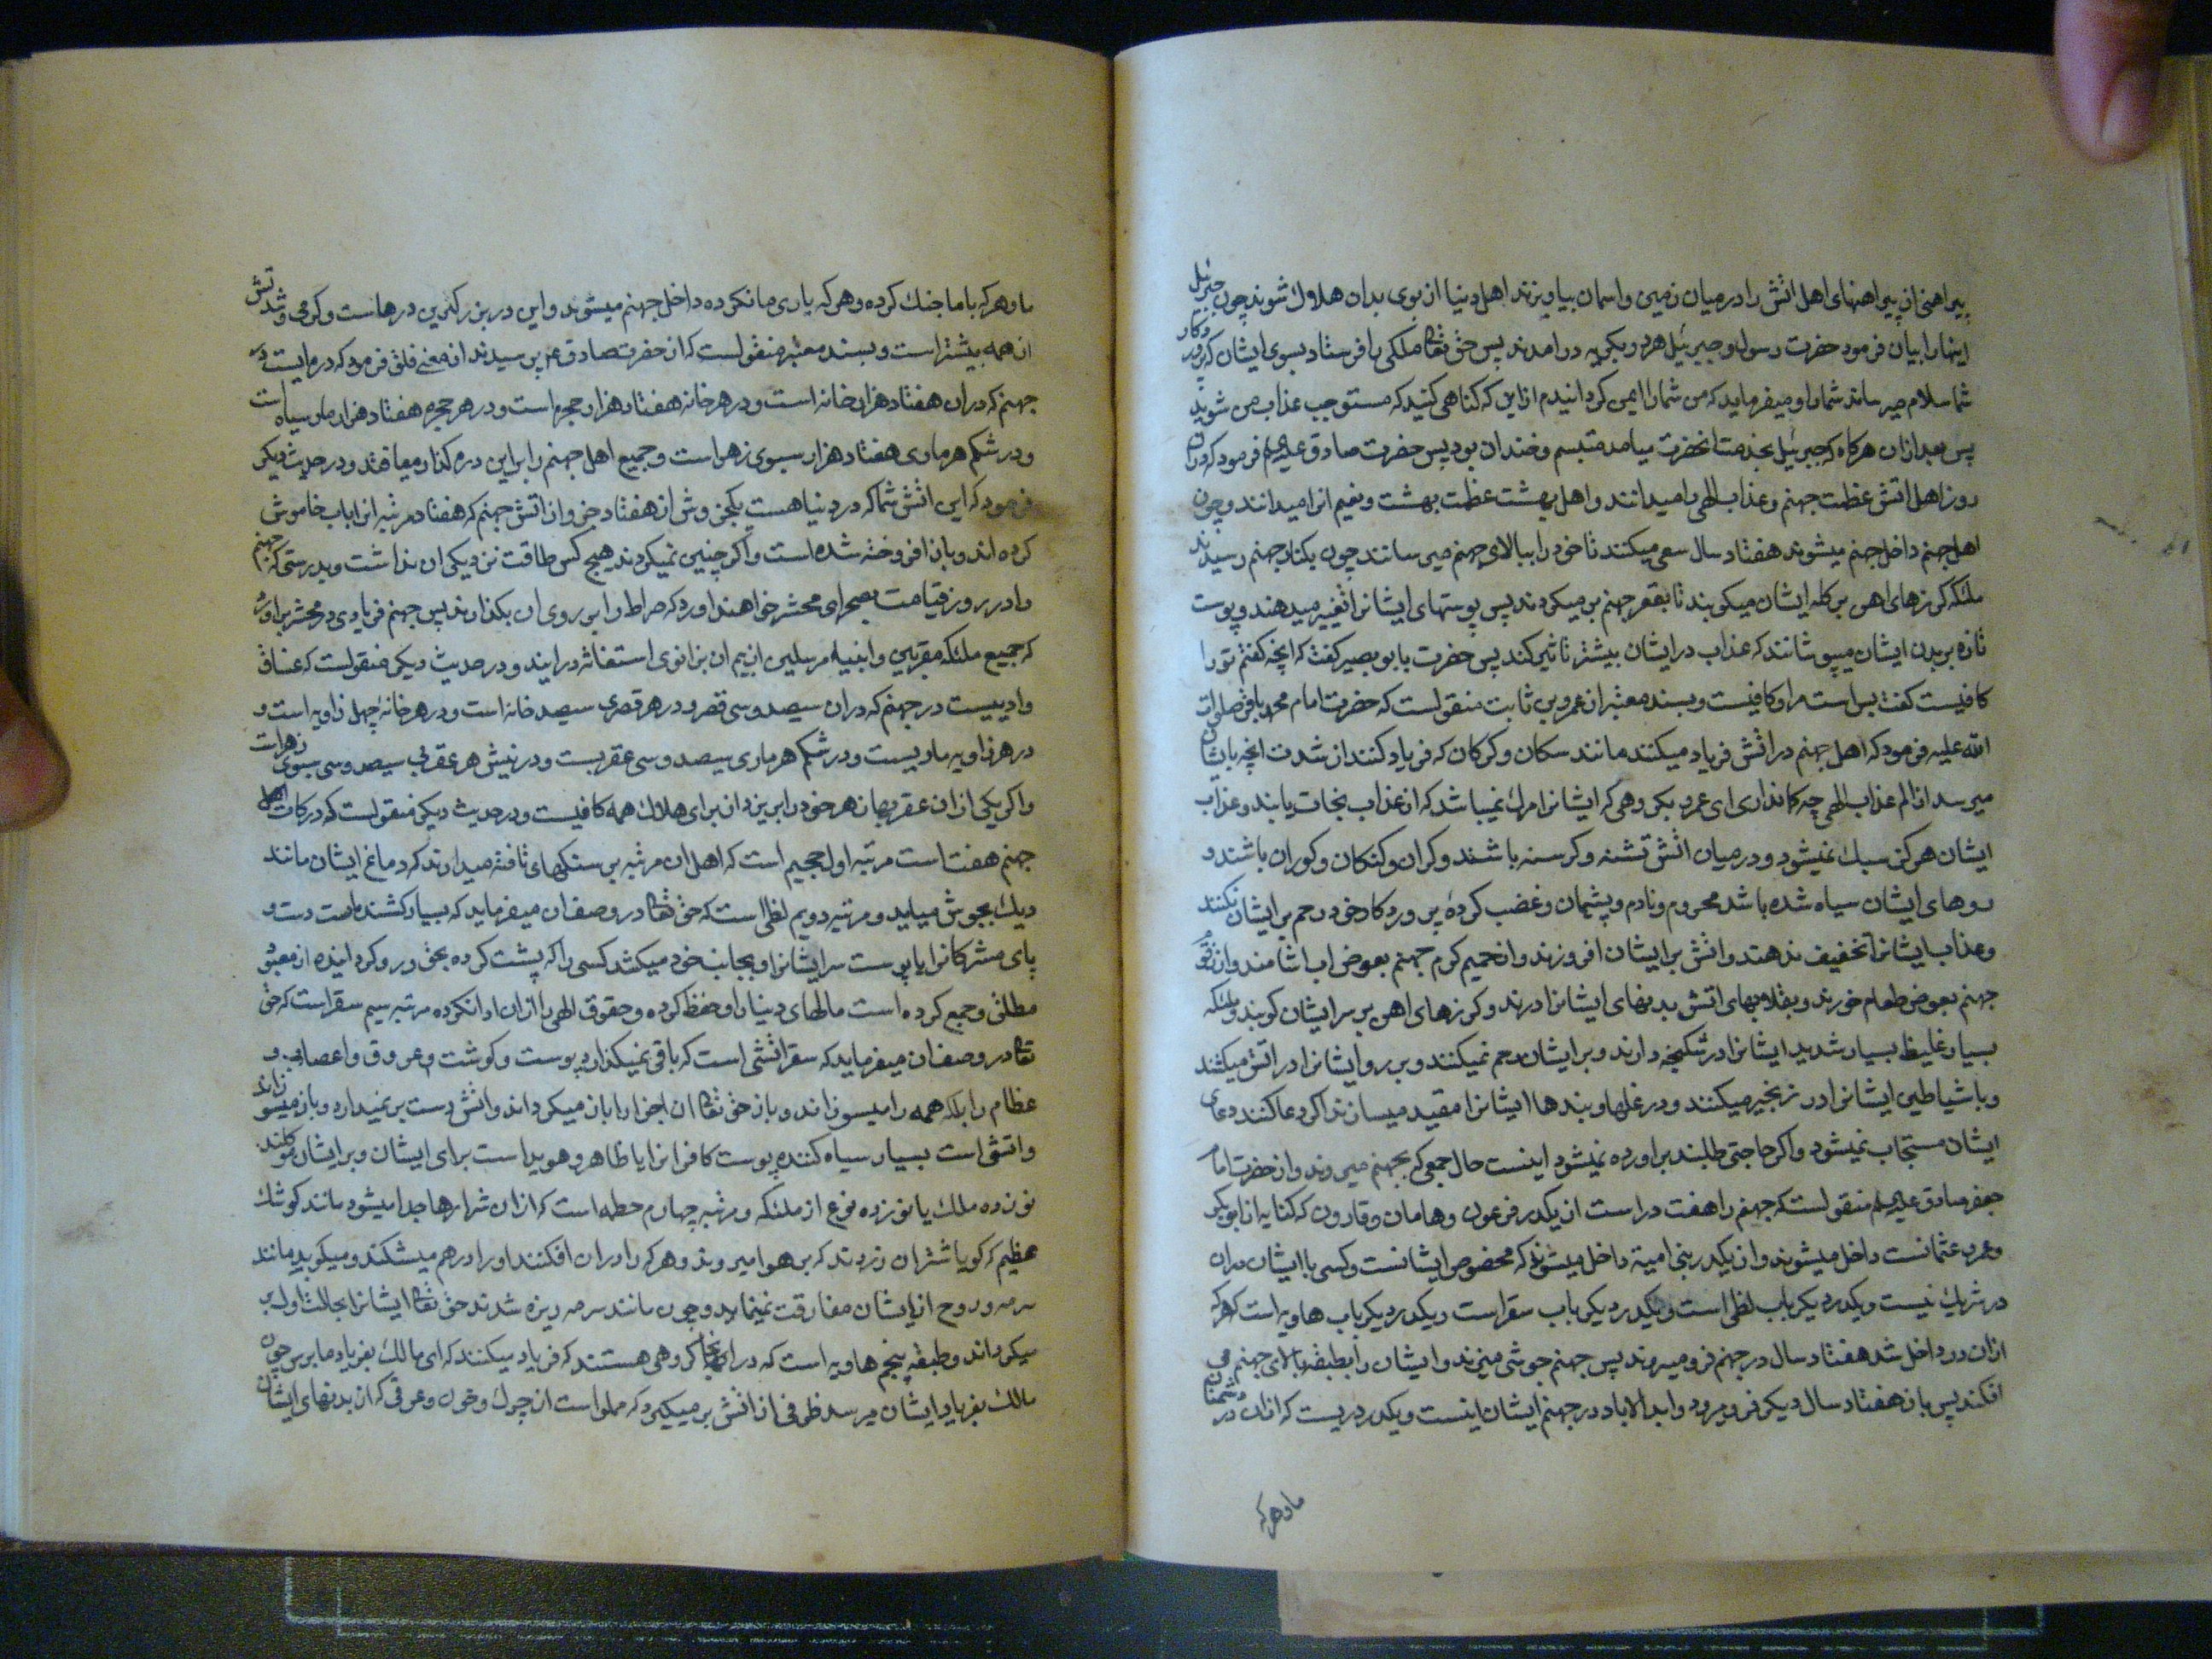 پیراهنی از پیراهنهای اهل اتش را در میان زمین و اسمان بیاویزند اهل دنیا از بوی بدان هلاک شوند چون جبرئیل
اینها را بیان فرمود حضرت رسول و جبرئیل هر دو بکریه در امدند پس حق تعالی ملکی را فرستاد بسوی ایشان که پروردکار
شما سلام میرساند شما را و میفرماید که من شما را ایمن کردانیدم از این که کناهی کنید که مستوجب عذاب من شوید
پس بعد ازان هرکاه که جبرئیل بخدمت انحضرت میامد متبسم و خندان بود پس حضرت صادق علیه السلام فرمود که دران
روز اهل اتش عظمت جهنم و عذاب الهی را میدانند و اهل بهشت عظمت بهشت و نعیم انرا میدانند و چون
اهل جهنم داخل جهنم میشوند هفتاد سال سعی میکنند تا خود را ببالای جهنم میرسانند چون بکنار جهنم رسیدند
ملئکه کرزهای اهن بر کله ایشان میکوبند تا بقعر جهنم بر میکردند پس پوستهای ایشانرا تغییر میدهند و پوست
تازه بر بدن ایشان میپوشانند که عذاب در ایشان بیشتر تاثیر کند پس حضرت بابو بصیر کفت که انچه کفتم تو را
کافیست کفت بس است مرا و کافیست و بسند معتبر از عمرو بن ثابت منقولست که حضرت امام محمد باقر صلوات
الله علیه فرمود که اهل جهنم در اتش فریاد میکنند مانند سکان و کرکان که فریاد کنند از شدت انچه بایشان
میرسد از الم عذاب الهی چه کمانداری ای عمرو بکروهی که ایشانرا مرک نمیباشد که از عذاب نجات یابند و عذاب
ایشان هرکز سبک نمیشود و در میان اتش تشنه و کرسنه باشند و کران و کنکان و کوران باشند و
روهای ایشان سیاه شده باشد محروم و نادم و پشیمان و غضب کردهٔ پروردکار خود رحم بر ایشان نکنند
و عذاب ایشانرا تخفیف ندهند و اتش بر ایشان افروزند و از حمیم کرم جهنم بعوض اب اشامند و از زقوم
جهنم بعوض طعام خورند و بقلابهای اتش بدنهای ایشانرا درند و کرزهای اهن بر سر ایشان کوبند و ملئکه
بسیار غلیظ بسیار شدید ایشانرا در شکنجه دارند و بر ایشان رحم نمیکنند و بر رو ایشانرا در اتش میکشند
و با شیاطین ایشانرا در زنجیر میکنند و در غلها و بندها ایشانرا مقید میسازند اکر دعا کنند دعای
ایشان مستجاب نمیشود و اکر حاجتی طلبند براورده نمیشود اینست حال جمعی که بجهنم میروند و از حضرت امام
جعفر صادق علیه السلام منقولست که جهنم را هفت در است از یکدر فرعون و هامان و قارون که کنایه از ابو بکر
و عمر و عثمانست داخل میشوند و از یکدر بنی امیة داخل میشوند که مخصوص ایشانست و کسی با ایشان دران
در شریک نیست و یکدر دیکر باب لظی است و یکدر دیکر باب سقر است و یکدر دیکر باب هاویه است که هرکه
ازان در داخل شد هفتاد سال در جهنم فرو میرود پس جهنم جوشی میزند و ایشان را بطبقه بالای جهنم می
افکند پس باز هفتاد سال دیکر فرو میرود و ابد الاباد در جهنم ایشان اینست و یکدر دریست که ازان در دشمنان
ما و هرکه
ما و هرکه با ما جنک کرده و هرکه یاری ما نکرده داخل جهنم میشوند و این در بزرکترین درهاست و کرمی و شدتش
از همه بیشتر است و بسند معتبر منقولست که از حضرت صادق ع پرسیدند از معنی فلق فرمود که دره‌ایست در
جهنم که دران هفتاد هزار خانه است و در هر خانه هفتاد هزار حجره است و در هر حجره هفتاد هزار مار سیاه است
و در شکم هر ماری هفتاد هزار سبوی زهر است و جمیع اهل جهنم را بر این دره کذار میافتد و در حدیث دیکر
فرمود که این اتش شما که در دنیا هست یکجزوش از هفتاد جزو از اتش جهنم که هفتاد مرتبه انرا باب خاموش
کرده‌اند و باز افروخته شده است و اکر چنین نمیکردند هیچ کس طاقت نزدیکی ان نداشت و بدرستی که جهنم
را در روز قیامت بصحرای محشر خواهند اورد که صراط را بر روی ان بکذارند پس جهنم فریادی در محشر براورد
که جمیع ملئکه مقربین و انبیاء مرسلین از بیم ان بزانوی استغاثه درایند و در حدیث دیکر منقولست که غساق
وادییست در جهنم که دران سیصد و سی قصر و در هر قصری سیصد خانه است و در هر خانهٔ چهل زاویه است و
در هر زاویه ماریست و در شکم هر ماری سیصد و سی عقربست و در نیش هر عقربی سیصد و سی سبوی زهر است
و اکر یکی از ان عقربها زهر خود را بریزد از برای هلاک همه کافیست و در حدیث دیکر منقولست که درکات اهل
جهنم هفت است مرتبه اول جحیم است که اهل ان مرتبه بر سنکهای تافته میدارند که دماغ ایشان مانند
دیک بجوش میاید و مرتبه دویم لظی است که حق تعالی در وصف ان میفرماید که بسیار کشنده است دست و
پای مشرکانرا یا پوست سر ایشانرا و بجانب خود میکشد کسی را که پشت کرده بحق و رو کردانیده از معبود
مطلق و جمع کرده است مالهای دنیا را و حفظ کرده و حقوق الهی را ازان ادا نکرده مرتبه سیم سقر است که حق
تعالی در وصف ان میفرماید که سقر اتشی است که باقی نمیکذارد پوست و کوشت و عروق و اعصاب و
عظام را بلکه همه را میسوزاند و باز حق تعالی ان اجزا را باز میکرداند و اتش دست بر نمیدارد و باز میسوزاند
و اتشی است بسیار سیاه کننده پوست کافرانرا یا ظاهر و هویداست برای ایشان و بر ایشان موکلند
نوزده ملک یا نوزده نوع از ملئکه و مرتبه چهارم حطمه است که ازان شرارها جدا میشود مانند کوشک
عظیم که کویا شتران زردند که بر هوا میروند و هرکه را دران افکنند او را در هم میشکند و میکوبد مانند
سرمه و روح از ایشان مفارقت نمینماید و چون مانند سرمه ریزه شدند حق تعالی ایشانرا بحالت اول بر
میکرداند و طبقه پنجم هاویه است که در انجا کروهی هستند که فریاد میکنند که ای مالک بفریاد ما برس چون
مالک بفریاد ایشان میرسد ظرفی از اتش بر میکیرد که مملو است از چرک و خون و عرقی که از بدنهای ایشان